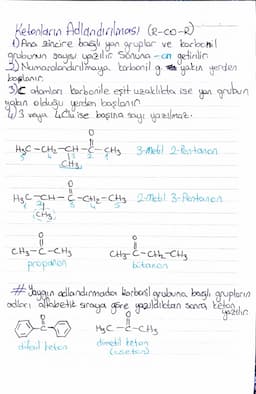 Ketonların Adlandırılması (R-CO-R)
1) Ana zincire bağlı yan gruplar ve karbonil
grubunun sayısı yazılır. Sonuna -on getirilir.
2) Numaralandırılmaya karbonil g yakın yerden
başlanır.
3) C atomları karbonile eşit uzaklıkta ise yan grubun
yakın olduğu yerden başlanır
4) 3 veya 4C lu ise başına sayı yazılmaz.
O
H3C-CH2-CH-C-CH3 3-metil 2-Pentanon
5 4 3 2 1
CH3
O
H3C-CH-C-CH2-CH3 2-metil 3-Pentanon
1 2 3 4 5
CH3
O O
CH3-C-CH3 CH3-C-CH2-CH3
propanon bütanon
# Yaygın adlandırmada karbonil grubuna bağlı grupların
adları alfabetik sıraya göre yazıldıktan sonra keton
yazılır.
O O
C H3C-C-CH3
difenil keton dimetil keton
(aseton)